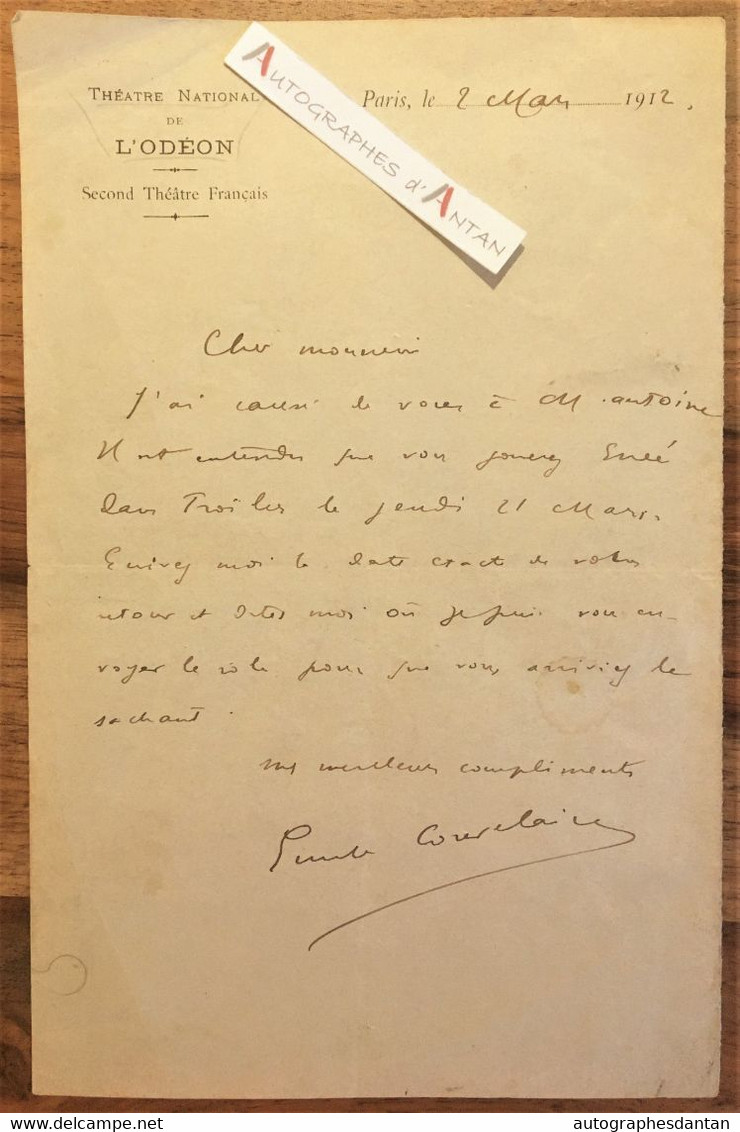 THÉATRE NATIONAL
DE
L'ODÉON
Second Théâtre Français
Paris, le 2 Mars 1912.
AUTOGRAPHES d'ANTAN
Cher monsieur
J'ai causé de vous à M. antoine
Il est entendu que vous jouerez Enée
dans Troïlus le jeudi 21 Mars.
Ecrivez moi la date exacte de votre
retour et dites moi où je puis vous en-
voyer le rôle pour que vous arriviez le
sachant.
mes meilleurs compliments
delcampe.net
autographesdantan